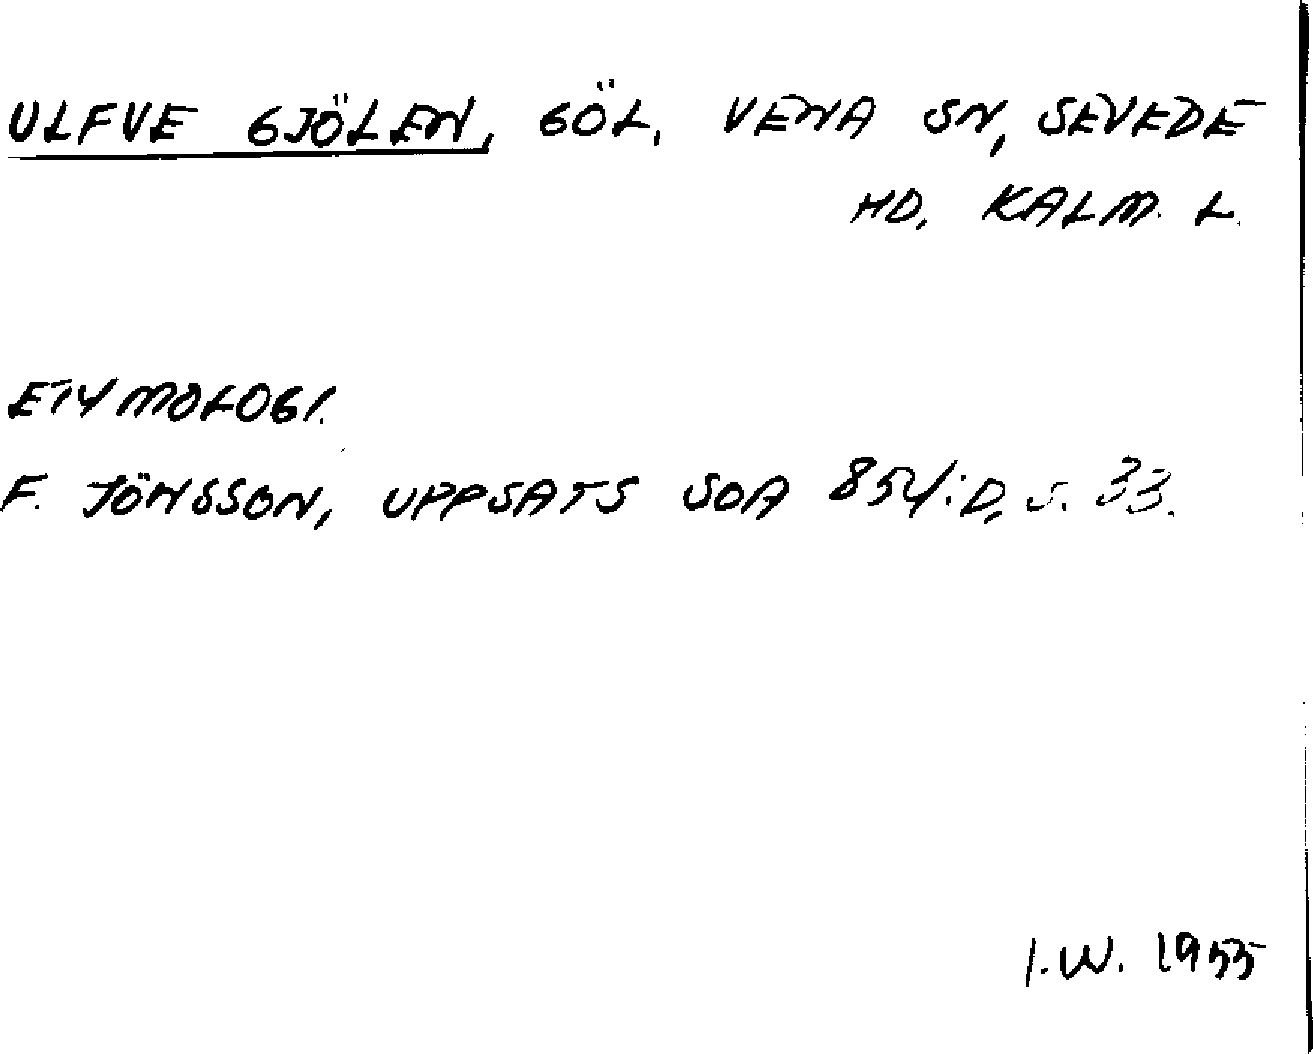 ULFVE GJÖLEN, GÖL, VENA SN, SEVEDE
HD, KALM. L.
ETYMOLOGI.
F. JÖNSSON, UPPSATS SOA 854:D, S. 33.
I.W. 1955